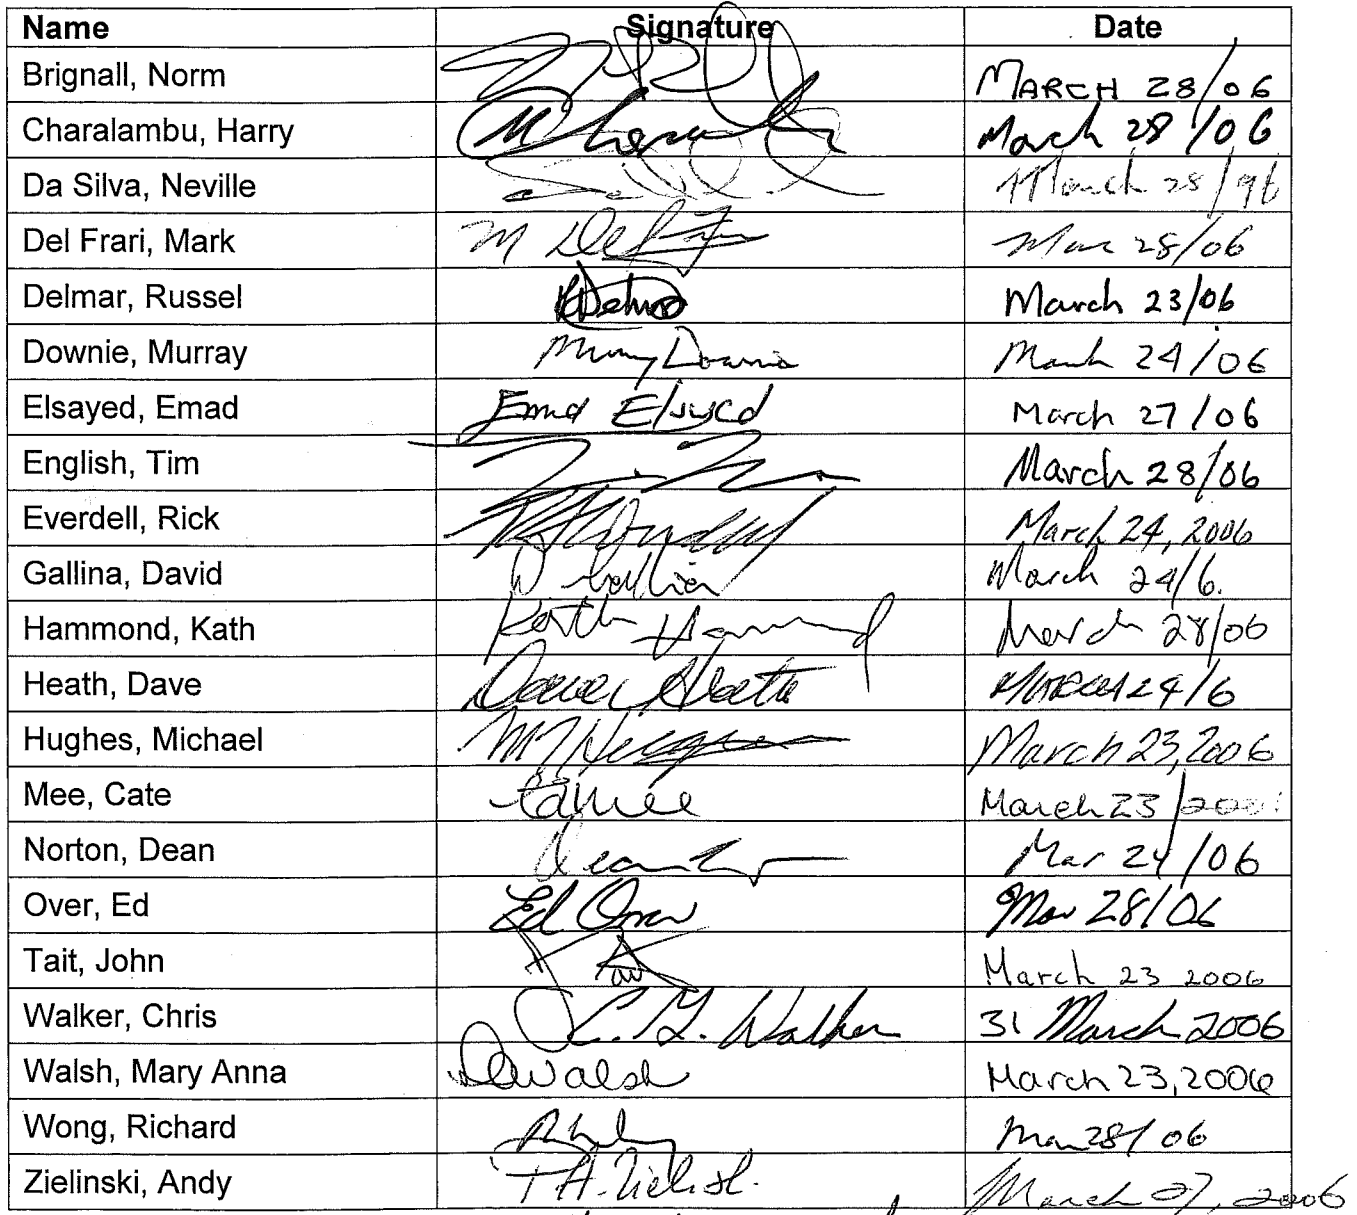 Name Signature Date
Brignall, Norm MARCH 28/06
Charalambu, Harry March 28/06
Da Silva, Neville March 28/96
Del Frari, Mark M Del Fra Mar 28/06
Delmar, Russel RDelmar March 23/06
Downie, Murray Murray Downie March 24/06
Elsayed, Emad Emad Elsayed March 27/06
English, Tim March 28/06
Everdell, Rick March 24, 2006
Gallina, David D. Gallina March 24/6.
Hammond, Kath Kath Hammond March 28/06
Heath, Dave Dave Heath MARCH 24/6
Hughes, Michael M Hughes March 23, 2006
Mee, Cate CaMee March 23/2006
Norton, Dean Dean Mar 24/06
Over, Ed Ed Over Mar 28/06
Tait, John March 23 2006
Walker, Chris C. G. Walker 31 March 2006
Walsh, Mary Anna Walsh March 23, 2006
Wong, Richard Mar 28/06
Zielinski, Andy A. Zielinski March 27, 2006